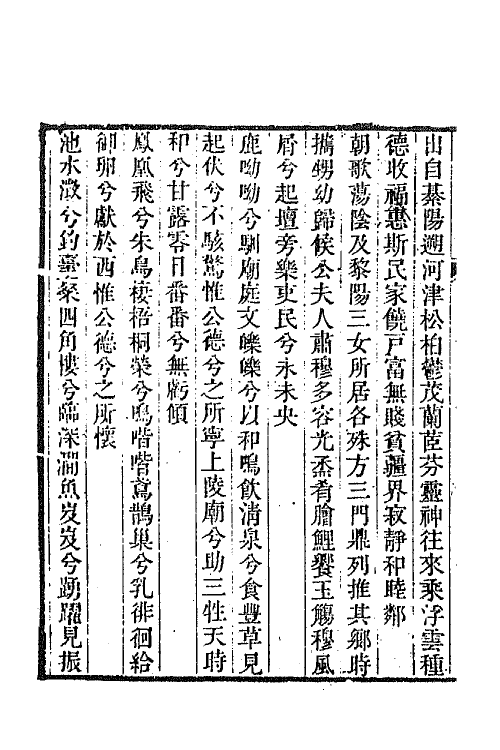 出自綦陽遡河津松柏鬱茂蘭茝芬靈神往來乘浮雲種
德收福惠斯民家饒戸富無賤貧疆界寂靜和睦鄰
朝歌蕩陰及黎陽三女所居各殊方三門鼎列推其鄉時
攜甥幼歸侯公夫人肅穆多容光烝肴膾鯉饗玉觴穆風
屑兮起壇旁樂吏民兮永未央
鹿呦呦兮馴廟庭文皪皪兮以和鳴飲淸泉兮食豐草見
起伏兮不駭驚惟公德兮之所寧上陵廟兮助三牲天時
和兮甘露零日番番兮無虧傾
鳳凰飛兮朱鳥棲梧桐榮兮鳴喈喈鳶鵲巢兮乳徘徊給
御卵兮獻於西惟公德兮之所懷
池水澂兮釣臺粲四角樓兮臨深澗魚岌岌兮踴躍見振